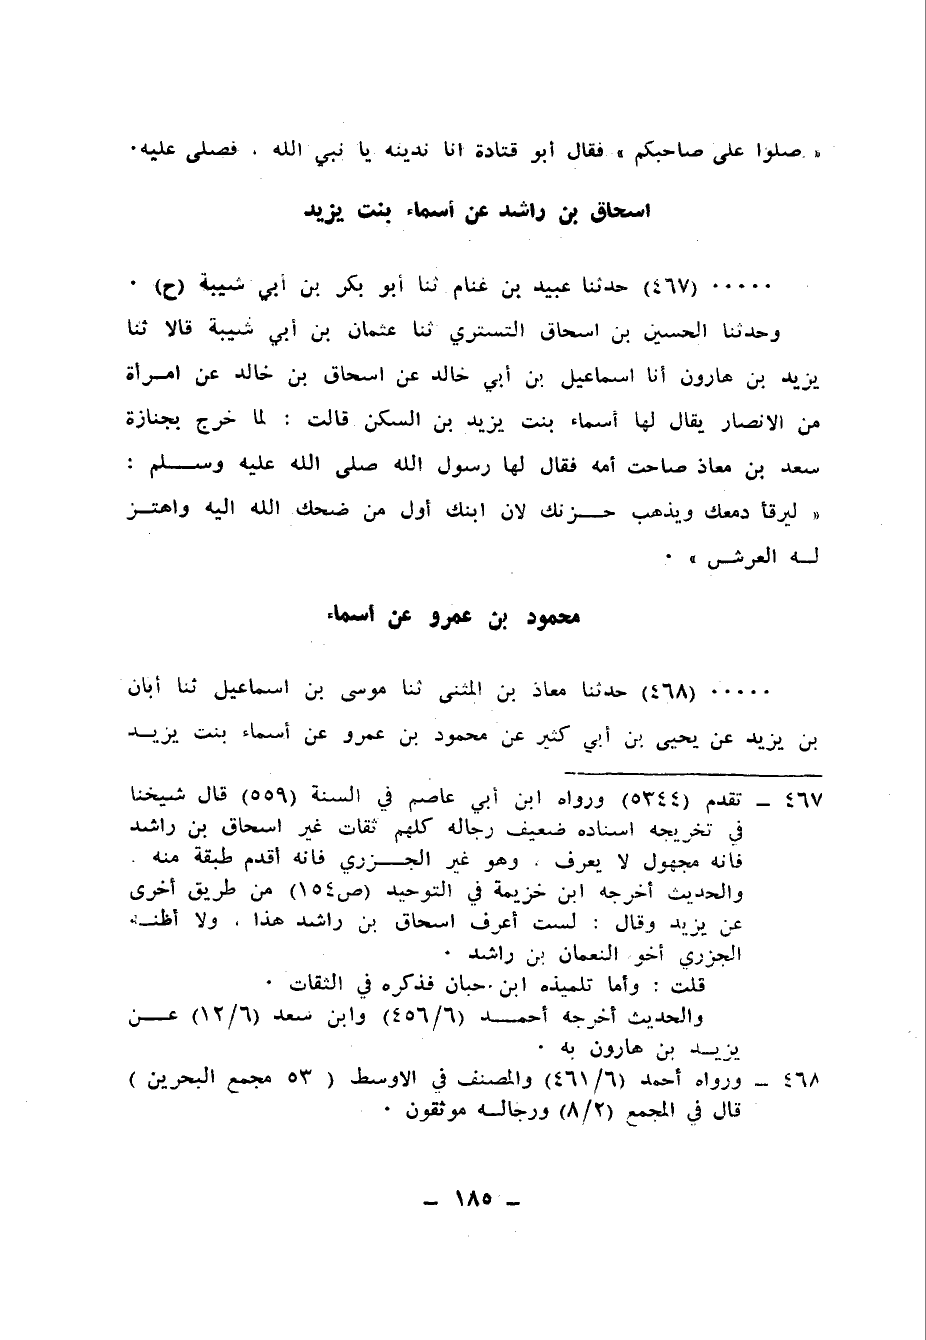 « صلوا على صاحبكم » فقال أبو قتادة انا ندينه يا نبي الله ، فصلى عليه·
اسحاق بن راشد عن أسماء بنت يزيد
····· (٤٦٧) حدثنا عبيد بن غنام ثنا أبو بكر بن أبي شيبة (ح) ·
وحدثنا الحسين بن اسحاق التستري ثنا عثمان بن أبي شيبة قالا ثنا
يزيد بن هارون أنا اسماعيل بن أبي خالد عن اسحاق بن خالد عن امرأة
من الانصار يقال لها أسماء بنت يزيد بن السكن قالت : لما خرج بجنازة
سعد بن معاذ صاحت أمه فقال لها رسول الله صلى الله عليه وسلم :
« ليرقأ دمعك ويذهب حزنك لان ابنك أول من ضحك الله اليه واهتز
له العرش » ·
محمود بن عمرو عن أسماء
····· (٤٦٨) حدثنا معاذ بن المثنى ثنا موسى بن اسماعيل ثنا أبان
بن يزيد عن يحيى بن أبي كثير عن محمود بن عمرو عن أسماء بنت يزيد
٤٦٧ ــ تقدم (٥٣٤٤) ورواه ابن أبي عاصم في السنة (٥٥٩) قال شيخنا
في تخريجه اسناده ضعيف رجاله كلهم ثقات غير اسحاق بن راشد
فانه مجهول لا يعرف ، وهو غير الجزري فانه أقدم طبقة منه .
والحديث أخرجه ابن خزيمة في التوحيد (ص١٥٤) من طريق أخرى
عن يزيد وقال : لست أعرف اسحاق بن راشد هذا ، ولا أظنه
الجزري أخو النعمان بن راشد ·
قلت : وأما تلميذه ابن حبان فذكره في الثقات ·
والحديث أخرجه أحمد (٤٥٦/٦) وابن سعد (١٢/٦) عن
يزيد بن هارون به ·
٤٦٨ ــ ورواه أحمد (٤٦١/٦) والمصنف في الاوسط ( ٥٣ مجمع البحرين )
قال في المجمع (٨/٢) ورجاله موثقون ·
ــ ١٨٥ ــ